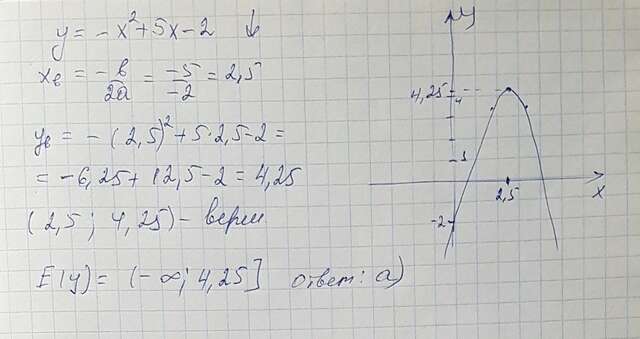 y = -x² + 5x - 2 ↓
xв = -в/2a = -5/-2 = 2,5
yв = -(2,5)² + 5·2,5 - 2 =
= -6,25 + 12,5 - 2 = 4,25
(2,5; 4,25) - верш
E(y) = (-∞; 4,25] ответ: а)
y
4,25
4
1
x
2,5
-2